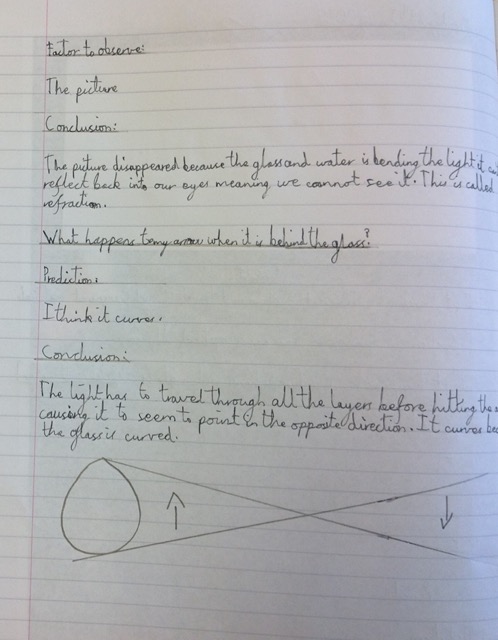 Factor to observe:
The picture
Conclusion:
The picture disappeared because the glass and water is bending the light it
reflect back into our eyes meaning we cannot see it. This is called
refraction.
What happens to my arrow when it is behind the glass?
Prediction:
I think it curves.
Conclusion:
The light has to travel through all the layers before hitting the
causing it to seem to point in the opposite direction. It curves
the glass is curved.